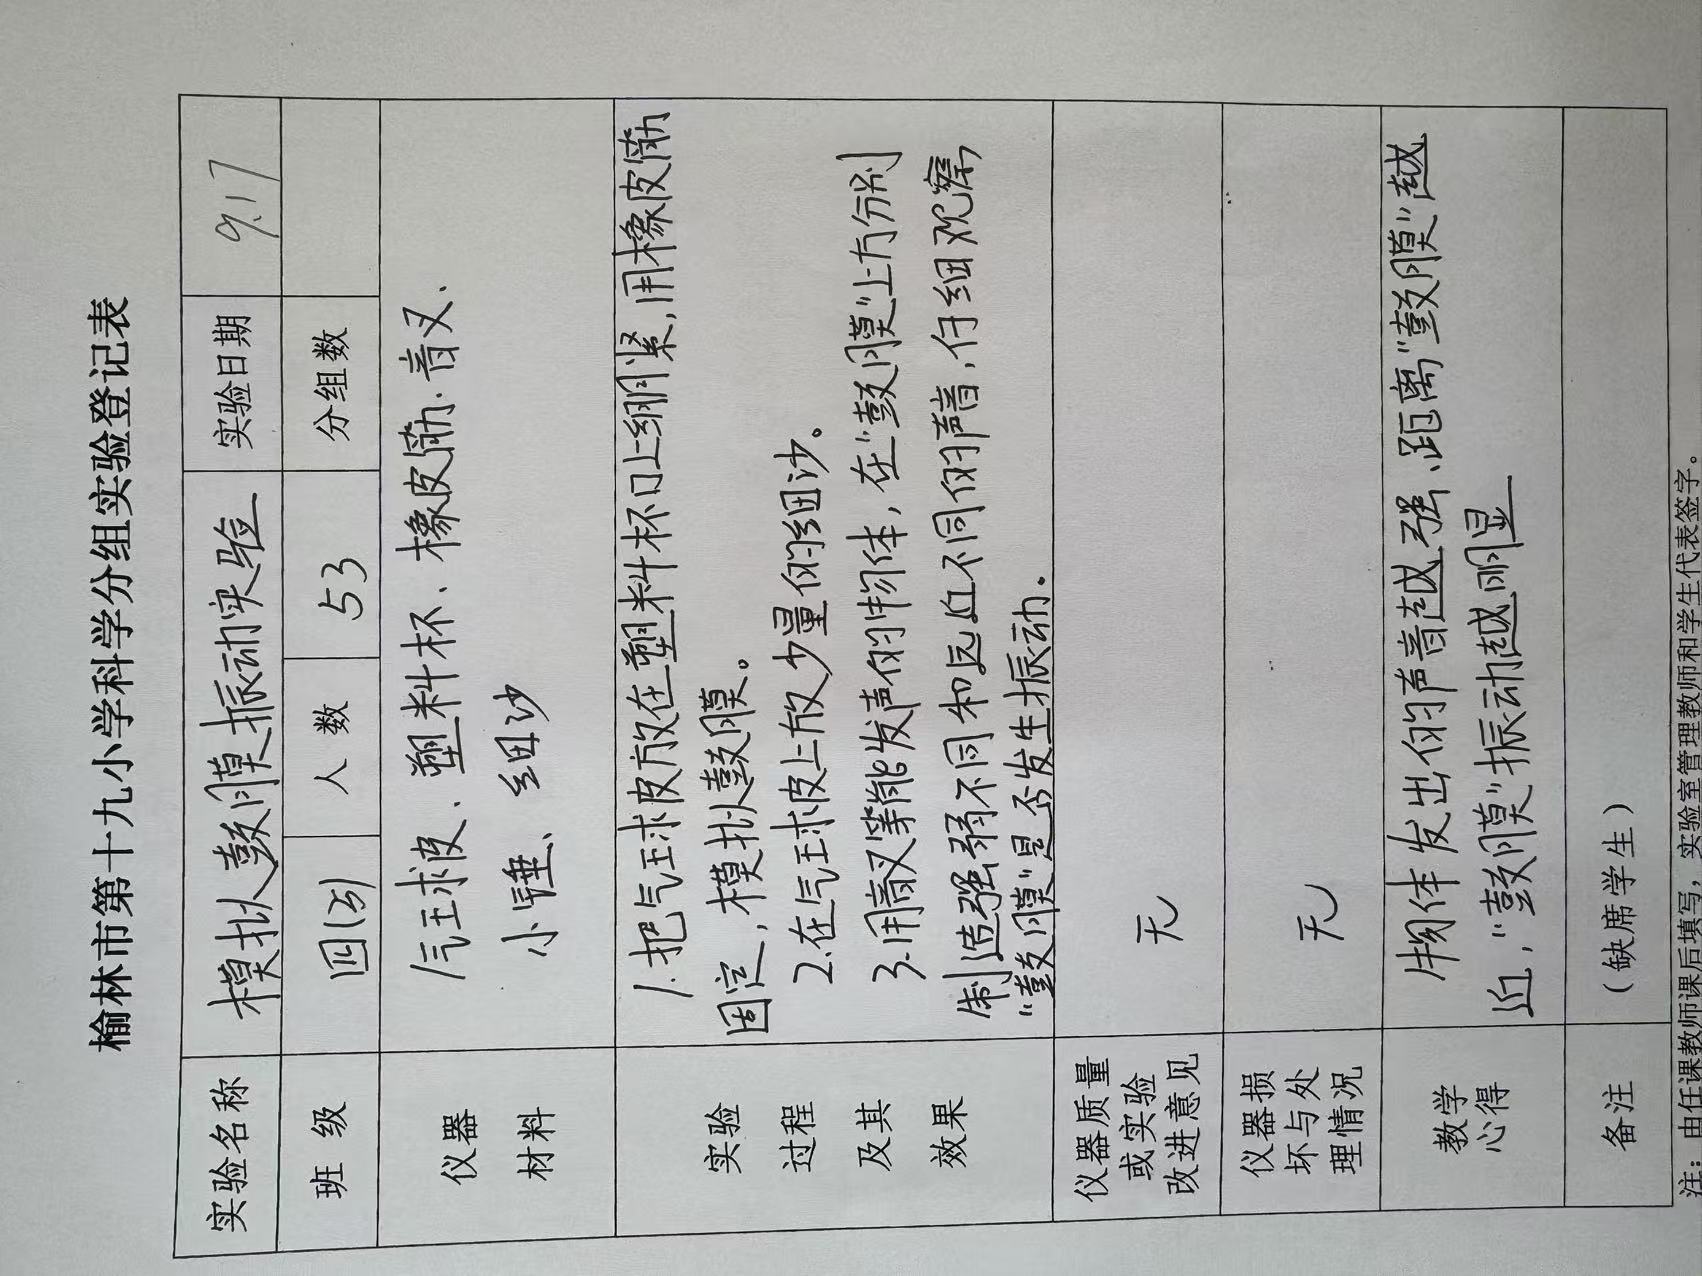 榆林市第十九小学科学分组实验登记表
实验名称 模拟鼓膜振动实验 实验日期 9.17
班级 四(3) 人数 53 分组数
仪器材料 气球皮、塑料杯、橡皮筋、音叉、
小锤、细沙
实验过程及其效果 1.把气球皮放在塑料杯口上绷紧,用橡皮筋
固定,模拟鼓膜。
2.在气球皮上放少量的细沙。
3.用音叉等能发声的物体,在"鼓膜"上方分别
制造强弱不同和远近不同的声音,仔细观察
"鼓膜"是否发生振动.
仪器质量或实验改进意见 无
仪器损坏与处理情况 无
教学心得 物体发出的声音越强、距离"鼓膜"越
近,"鼓膜"振动越明显
备注 (缺席学生)
注:由任课教师课后填写,实验室管理教师和学生代表签字。